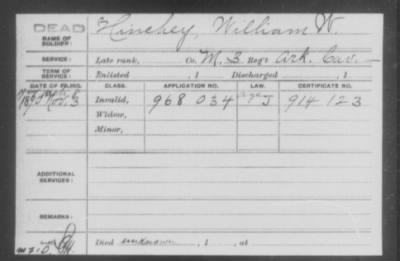 DEAD
NAME OF SOLDIER: Hinchey, William W.
SERVICE: Late rank, Co. M. 3 Reg't Ark. Cav.
TERM OF SERVICE: Enlisted , 1 Discharged , 1
DATE OF FILING. CLASS. APPLICATION NO. LAW. CERTIFICATE NO.
Nov. 3 Invalid, 968 034 J 914 123
Widow,
Minor,
ADDITIONAL SERVICES:
REMARKS:
Died unknown , 1 , at